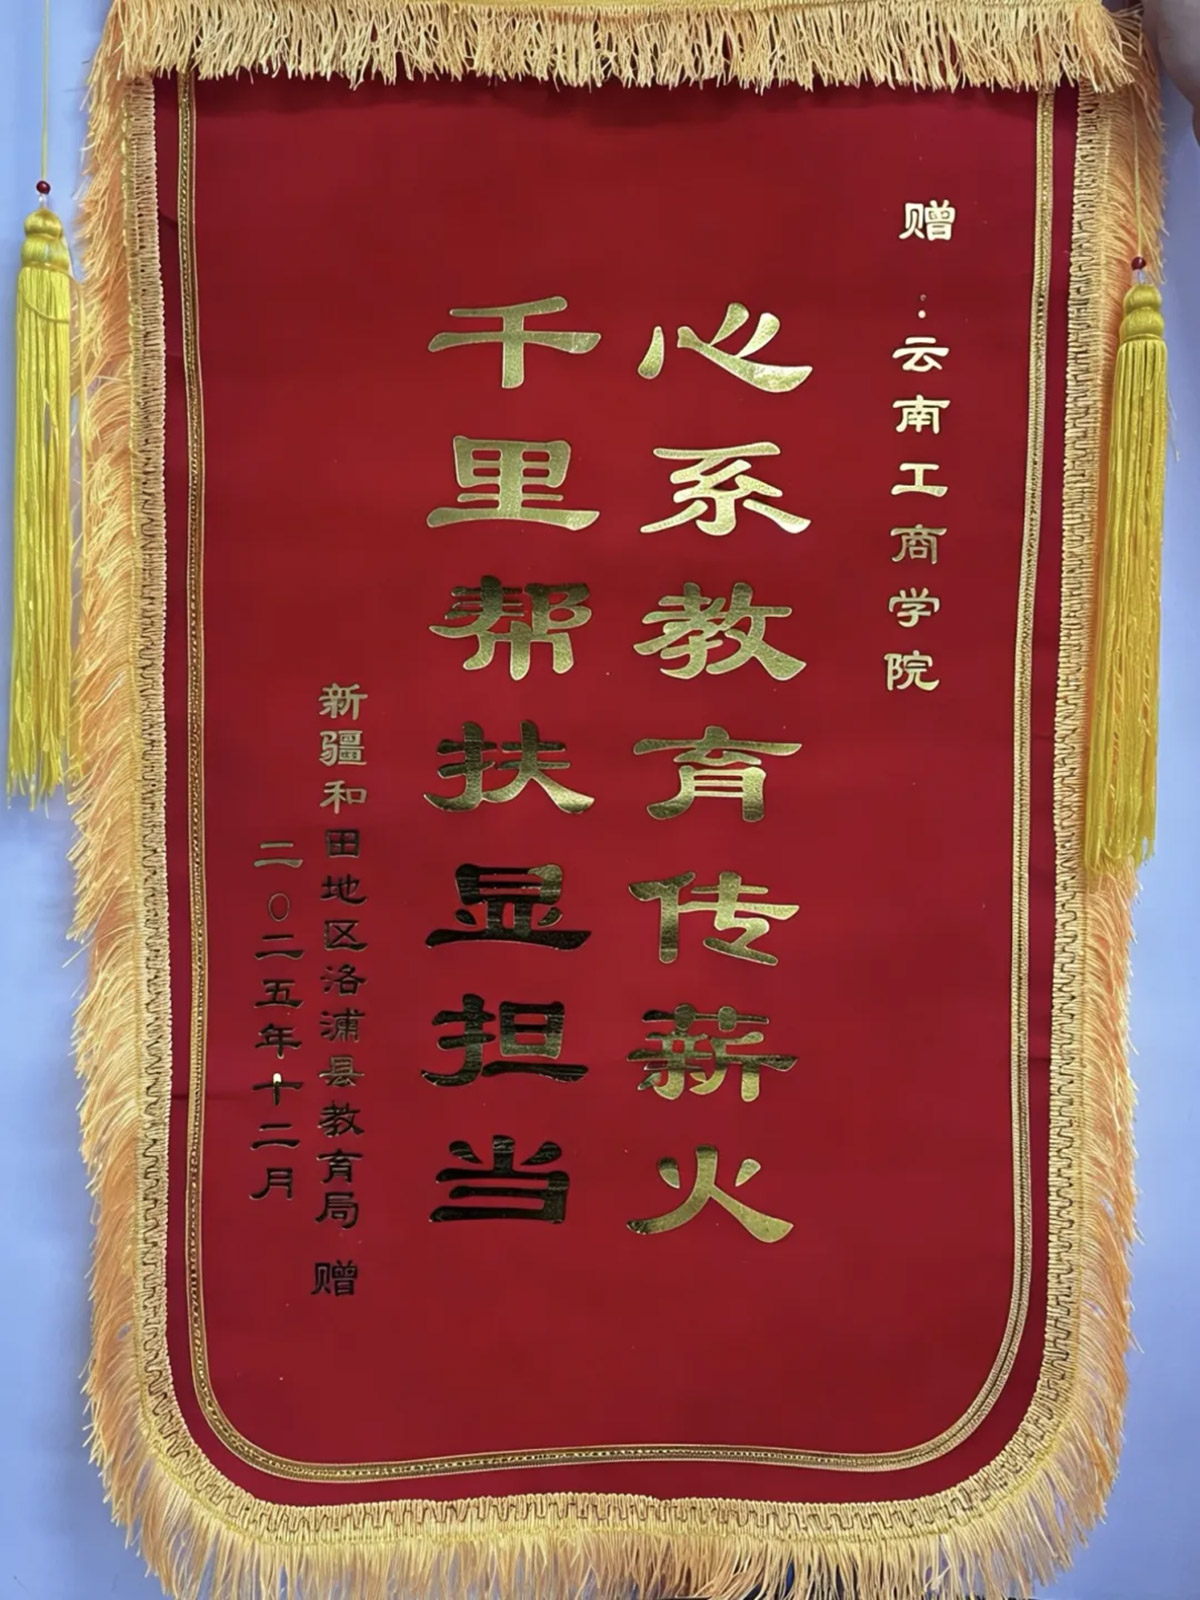 赠：云南工商学院
心系教育传薪火
千里帮扶显担当
新疆和田地区洛浦县教育局 赠
二〇二五年十二月